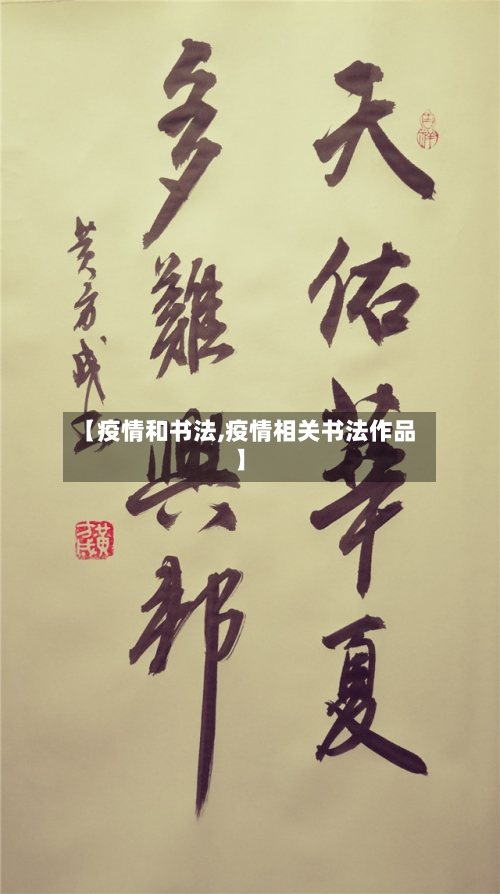 天佑華夏
多難興邦
黄方成
【疫情和书法,疫情相关书法作品
】